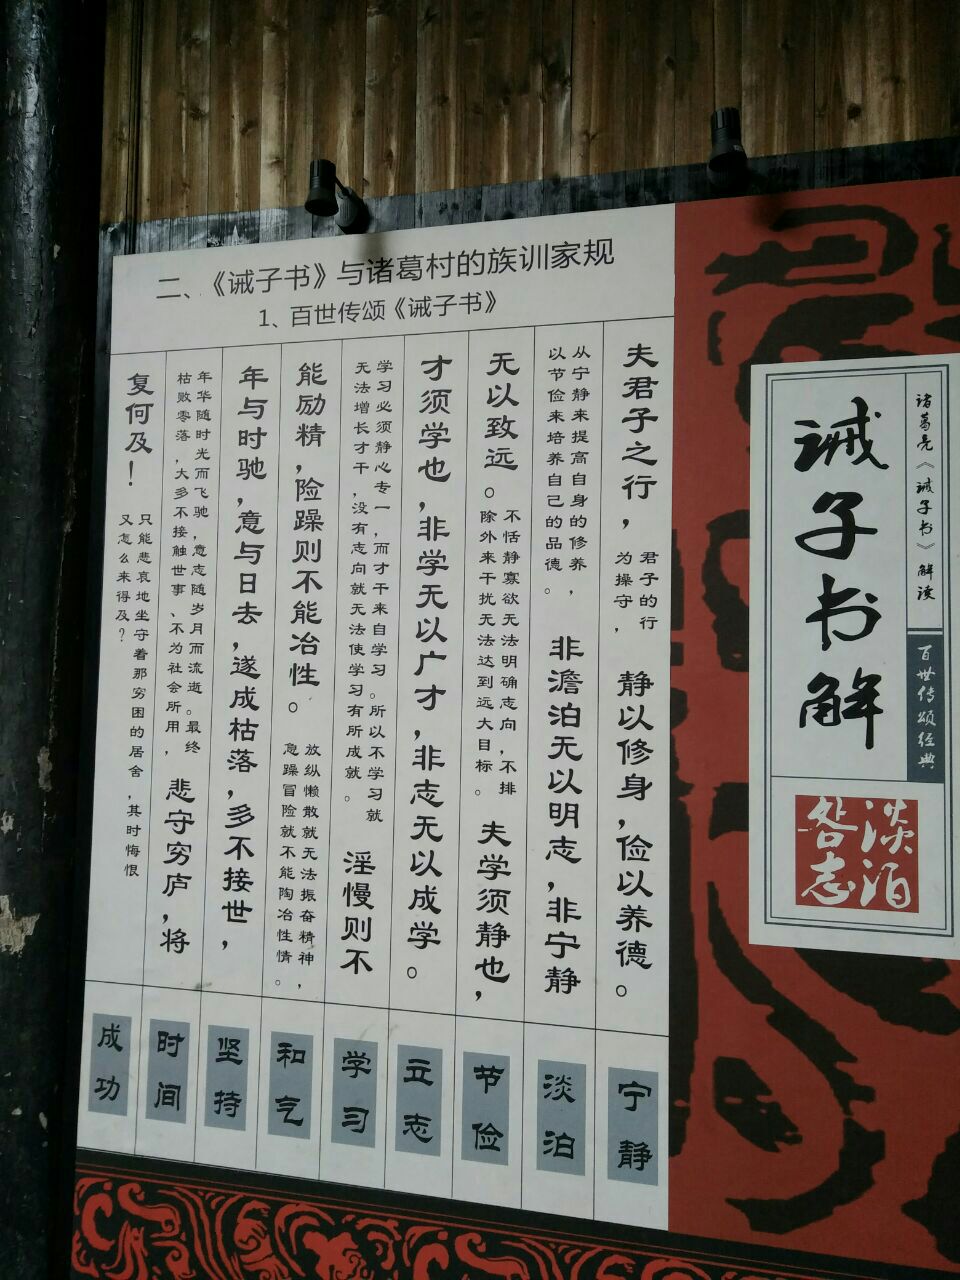 二、《诫子书》与诸葛村的族训家规
1、百世传颂《诫子书》
诸葛亮《诫子书》解读
百世传颂经典
诫子书解
淡泊
明志
夫君子之行，
君子的行
为操守，
静以修身，俭以养德。
从宁静来提高自身的修养，
以节俭来培养自己的品德。
非澹泊无以明志，非宁静
无以致远。
不恬静寡欲无法明确志向，不排
除外来干扰无法达到远大目标。
夫学须静也，
才须学也，非学无以广才，非志无以成学。
学习必须静心专一，而才干来自学习。所以不学习就
无法增长才干，没有志向就无法使学习有所成就。
淫慢则不
能励精，险躁则不能冶性。
放纵懒散就无法振奋精神，
急躁冒险就不能陶冶性情。
年与时驰，意与日去，遂成枯落，多不接世，
年华随时光而飞驰，意志随岁月而流逝。最终
枯败零落，大多不接触世事、不为社会所用，
悲守穷庐，将
复何及！
只能悲哀地坐守着那穷困的居舍，其时悔恨
又怎么来得及？
宁静
淡泊
节俭
立志
学习
和气
坚持
时间
成功